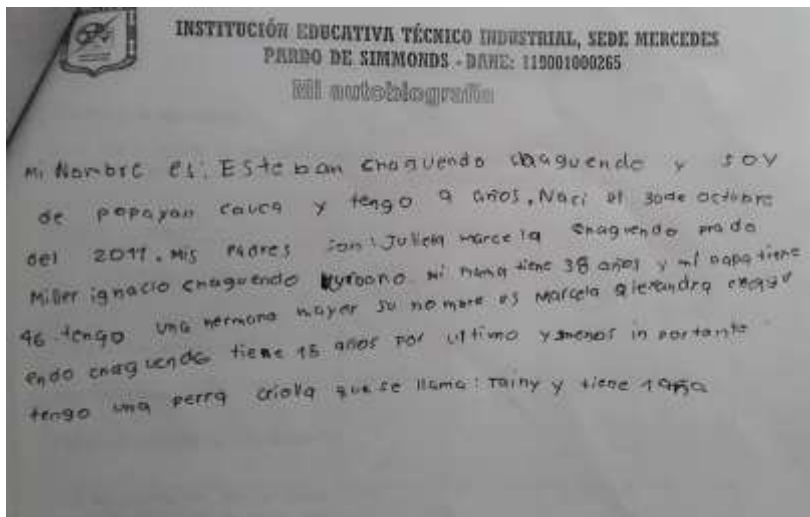 INSTITUCIÓN EDUCATIVA TÉCNICO INDUSTRIAL, SEDE MERCEDES
PARDO DE SIMMONDS - DANE: 119001000265
Mi autobiografía
Mi Nombre es: Esteban chaguendo chaguendo y soy
de popayan cauca y tengo 9 años. Naci el 30 de octubre
del 2011. Mis Padres son: Julieta marcela chaguendo prado
Miller ignacio chaguendo mi mama tiene 38 años y mi papa tiene
46 tengo una hermana mayor su nombre es Marcela alexandra chagu
endo chaguendo tiene 15 años por ultimo y menos in portante
tengo una perra criolla que se llama: Tainy y tiene 1 año